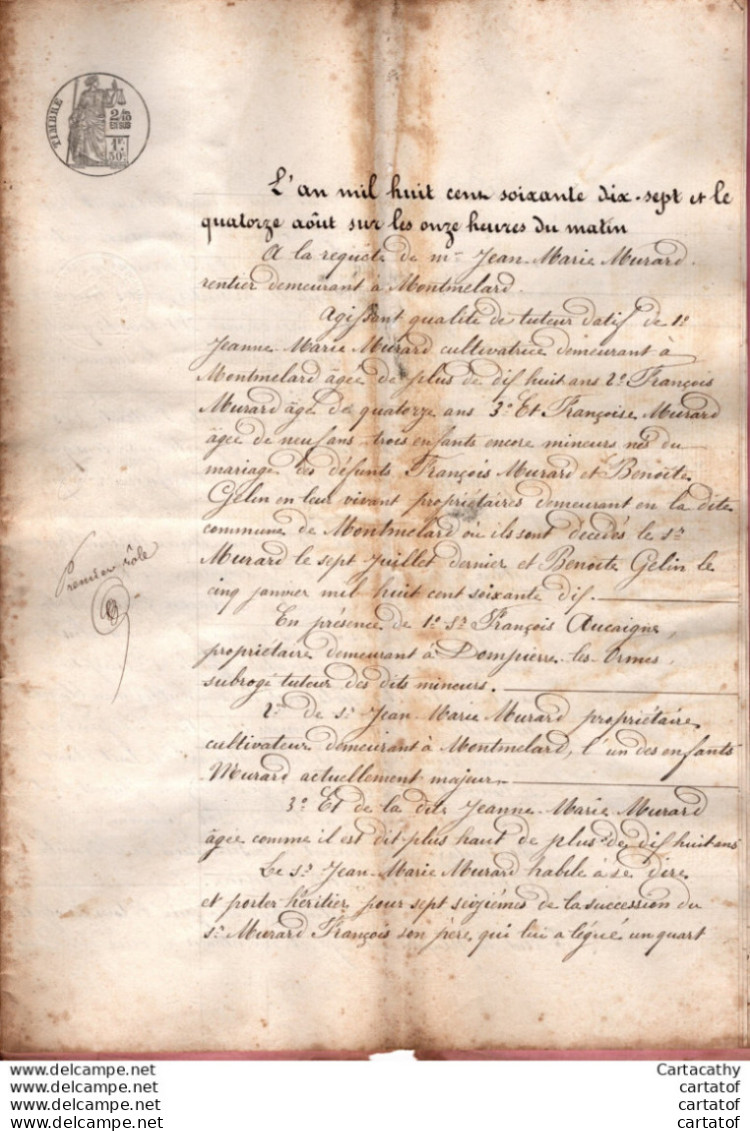 TIMBRE
2/10
EN SUS
1F
50c
L'an mil huit cent soixante dix-sept et le
quatorze août sur les onze heures du matin
A la requête de mr Jean Marie Murard
rentier demeurant à Montmelard.
Agissant qualité de tuteur datif de 1°
Jeanne Marie Murard cultivatrice demeurant à
Montmelard âgée de plus de dix huit ans 2° François
Murard âgé de quatorze ans 3° Et Françoise Murard
âgée de neuf ans trois enfants encore mineurs nés du
mariage des défunts François Murard et Benoîte
Gelin en leur vivant propriétaires demeurant en la dite
commune de Montmelard où ils sont décédés le sr
Murard le sept Juillet dernier et Benoite Gelin le
cinq janvier mil huit cent soixante dix.
Premier rôle
En présence de 1° sr François Aucaigne,
propriétaire demeurant à Dompierre les Ormes,
subrogé tuteur des dits mineurs.
2° de sr Jean Marie Murard propriétaire
cultivateur demeurant à Montmelard, l'un des enfants
Murard actuellement majeur
3° Et de la dite Jeanne Marie Murard
âgée comme il est dit plus haut de plus de dix huit ans
Le sr Jean Marie Murard habile à se dire
et porter héritier pour sept seizièmes de la succession du
sr Murard François son père qui lui a légué un quart
www.delcampe.net
www.delcampe.net
www.delcampe.net
www.delcampe.net
Cartacathy
cartatof
cartatof
cartatof